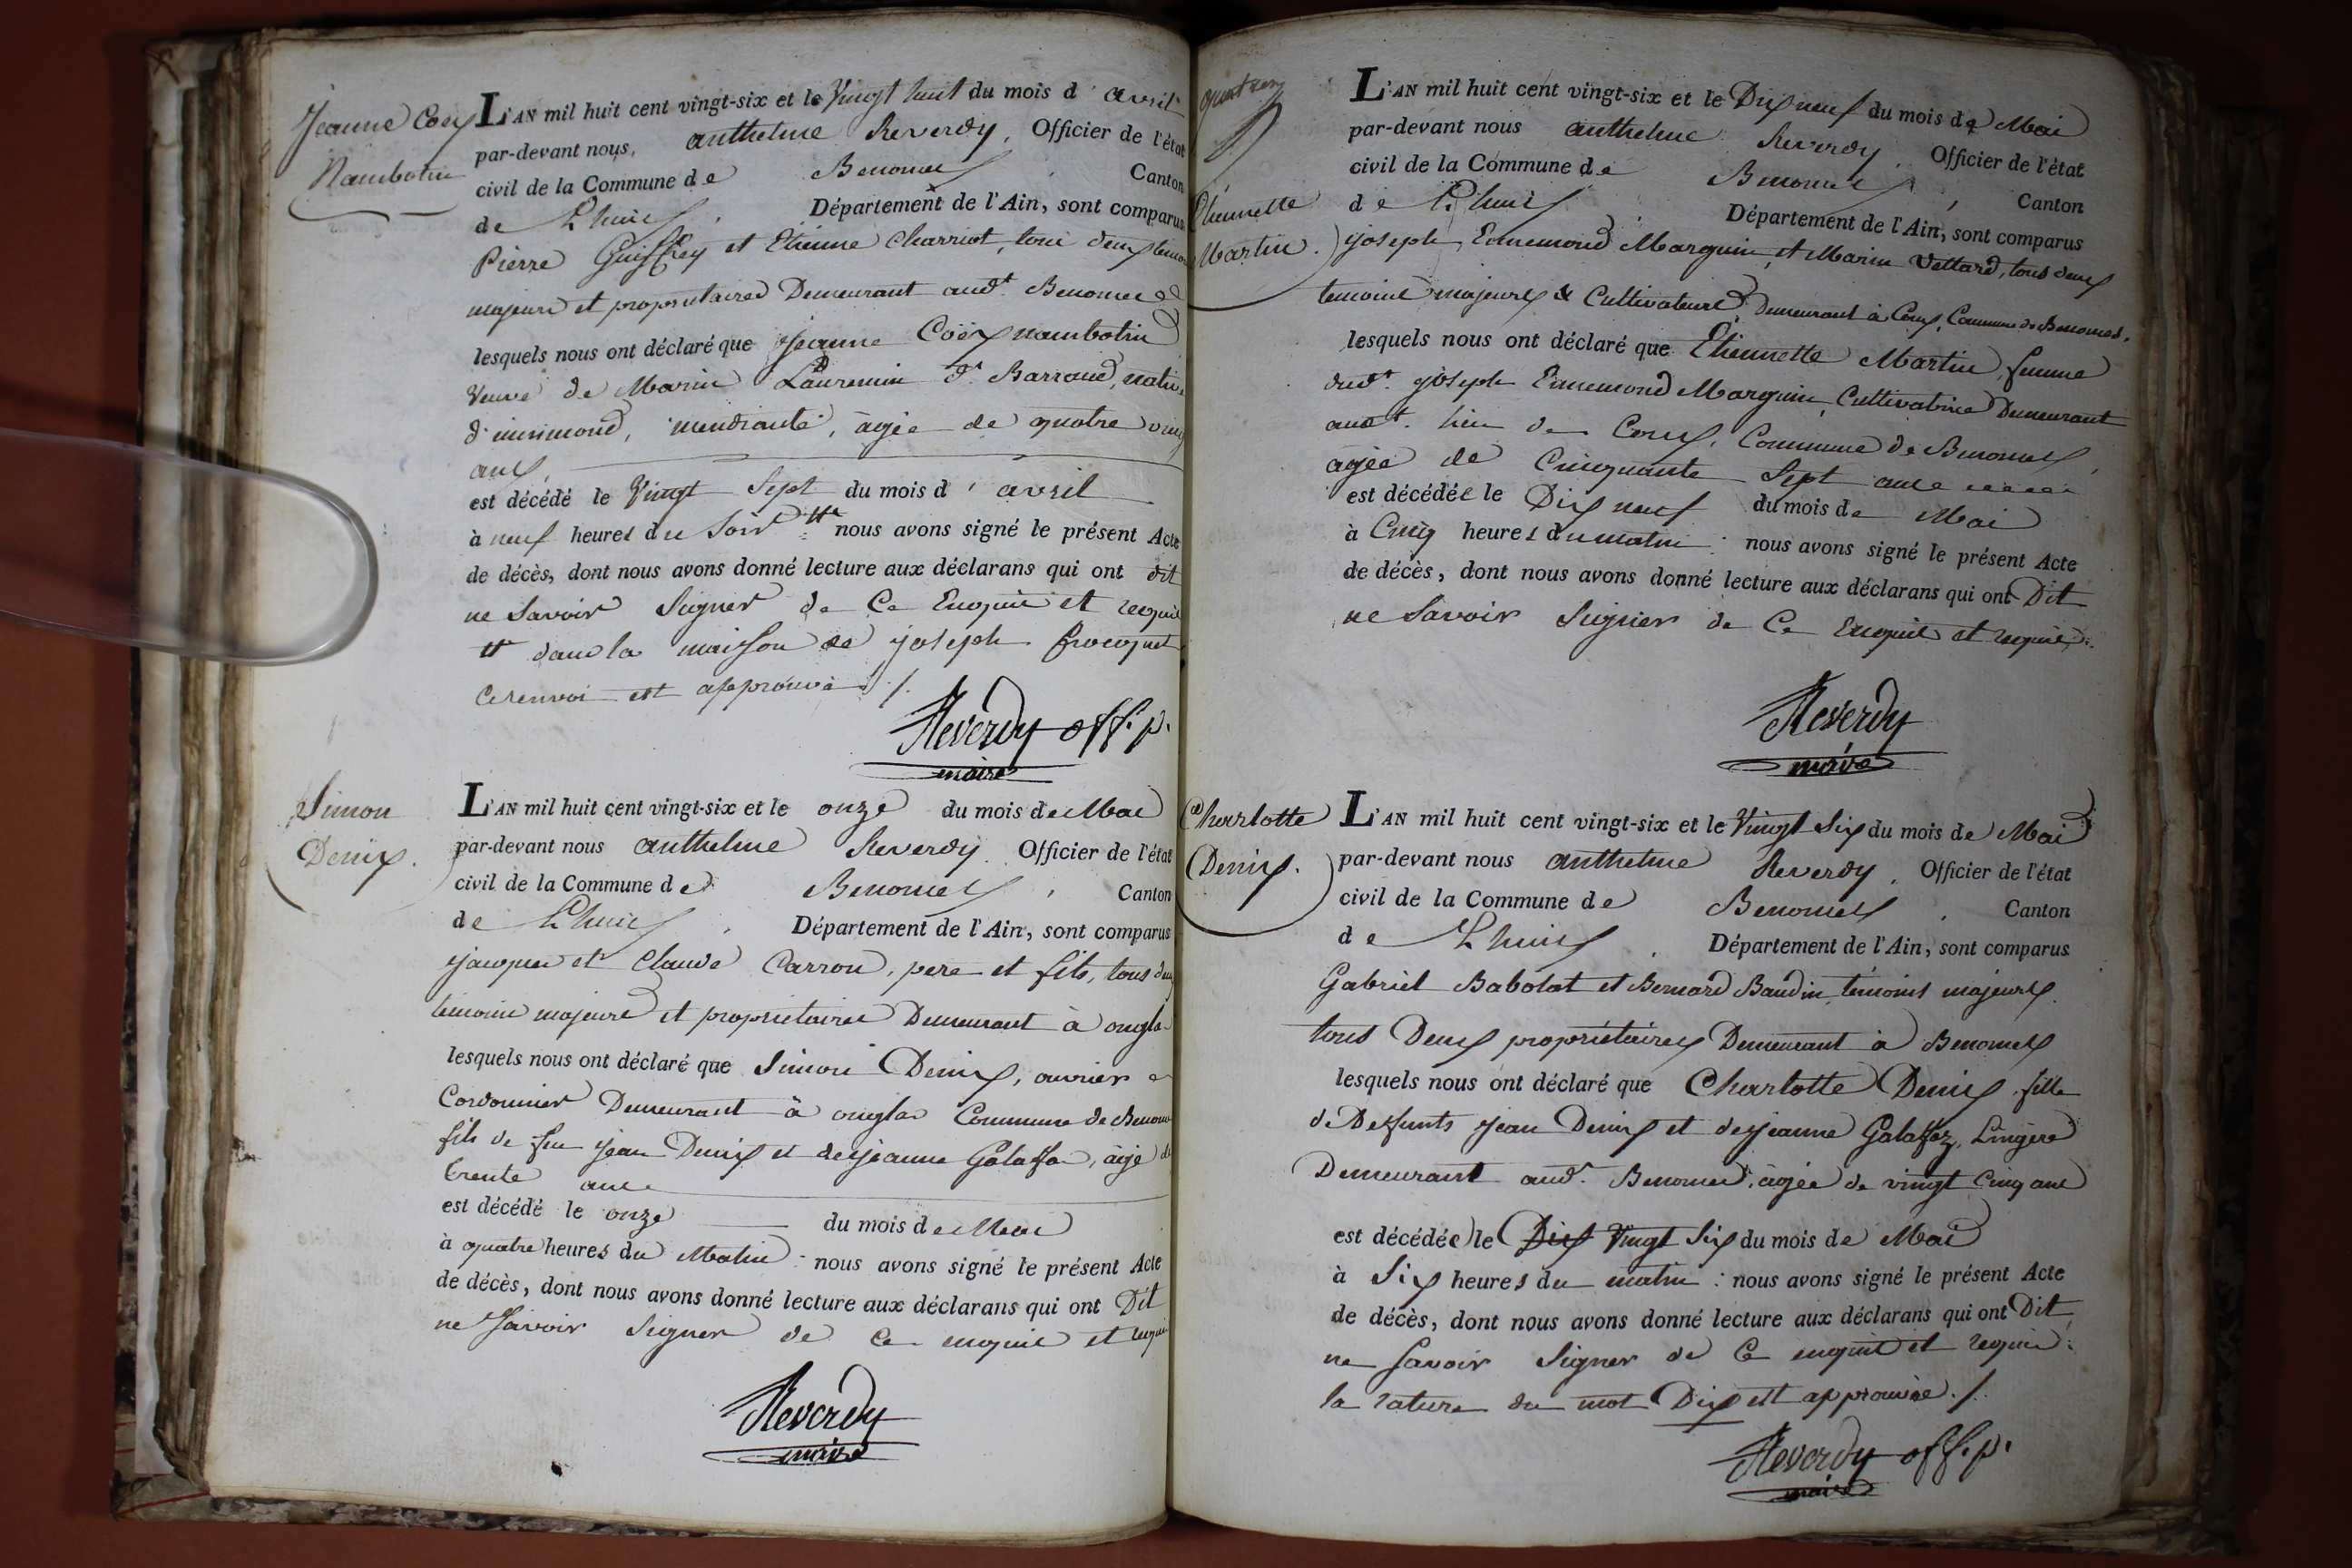 Jeanne Coëx
Nambotin
L'AN mil huit cent vingt-six et le Vingt huit du mois d' avril
par-devant nous, anthelme Reverdy, Officier de l'état
civil de la Commune de Benonces, Canton
de Lhuis, Département de l'Ain, sont comparus
Pierre Guiffrey et Etienne Charriot, tous deux temoins
majeurs et proprietaires Demeurant audt. Benonces
lesquels nous ont déclaré que jeanne Coëx nambotin
Veuve de Marin Laurencin dt. Barraud, native
d'innimond, mendiante, àgée de quatre vingt
ans,
est décédé le Vingt Sept du mois d' avril
à neuf heures du Soir nous avons signé le présent Acte
de décès, dont nous avons donné lecture aux déclarans qui ont dit
ne Savoir Signer de Ce Enquis et requis
dans la maison de joseph
Ce renvoi est approuvé ./.
Reverdy off. p.
maire
Simon
Denis.
L'AN mil huit cent vingt-six et le onze du mois de Mai
par-devant nous anthelme Reverdy. Officier de l'état
civil de la Commune de Benonces, Canton
de Lhuis, Département de l'Ain, sont comparus
jacques et Claude Carron, pere et fils, tous deux
temoins majeurs et proprietaires Demeurant à onglas
lesquels nous ont déclaré que Simon Denis, ouvrier
Cordonnier Demeurant à onglas Commune de Benonces
fils de feu jean Denis et de jeanne Galaffa, àgé de
trente ans
est décédé le onze du mois de Mai
à quatre heures du Matin : nous avons signé le présent Acte
de décès, dont nous avons donné lecture aux déclarans qui ont Dit
ne Savoir Signer de Ce enquis et requis
Reverdy
maire
Etiennette
Martin.
L'AN mil huit cent vingt-six et le Dix neuf du mois de Mai
par-devant nous anthelme Reverdy, Officier de l'état
civil de la Commune de Benonces, Canton
de Lhuis, Département de l'Ain, sont comparus
joseph Ennemond Marguin, et Marin Vettard, tous deux
temoins majeurs & Cultivateurs, Demeurant à Coux, Commune de Benonces.
lesquels nous ont déclaré que Etiennette Martin, femme
dudt. joseph Ennemond Marguin, Cultivatrice Demeurant
audt. lieu de Coux, Commune de Benonces,
agée de Cinquante Sept ans
est décédée le Dix neuf du mois de Mai
à Cinq heures du matin : nous avons signé le présent Acte
de décès, dont nous avons donné lecture aux déclarans qui ont Dit
ne Savoir Signer de Ce Enquis et requis.
Reverdy
maire
Charlotte
Denis.
L'AN mil huit cent vingt-six et le Vingt Six du mois de Mai
par-devant nous anthelme Reverdy, Officier de l'état
civil de la Commune de Benonces, Canton
de Lhuis, Département de l'Ain, sont comparus
Gabriel Babolat et Bernard Baudin, témoins majeurs
tous Deux propriétaires Demeurant à Benonces
lesquels nous ont déclaré que Charlotte Denis fille
de Deffunts jean Denis et de jeanne Galaffaz, Lingere
Demeurant audt. Benonces, àgée de vingt Cinq ans
est décédée le Dix Vingt Six du mois de Mai
à Six heures du matin : nous avons signé le présent Acte
de décès, dont nous avons donné lecture aux déclarans qui ont Dit
ne Savoir Signer de Ce enquis et requis.
la rature du mot Dix est approuvée ./.
Reverdy off. p.
maire